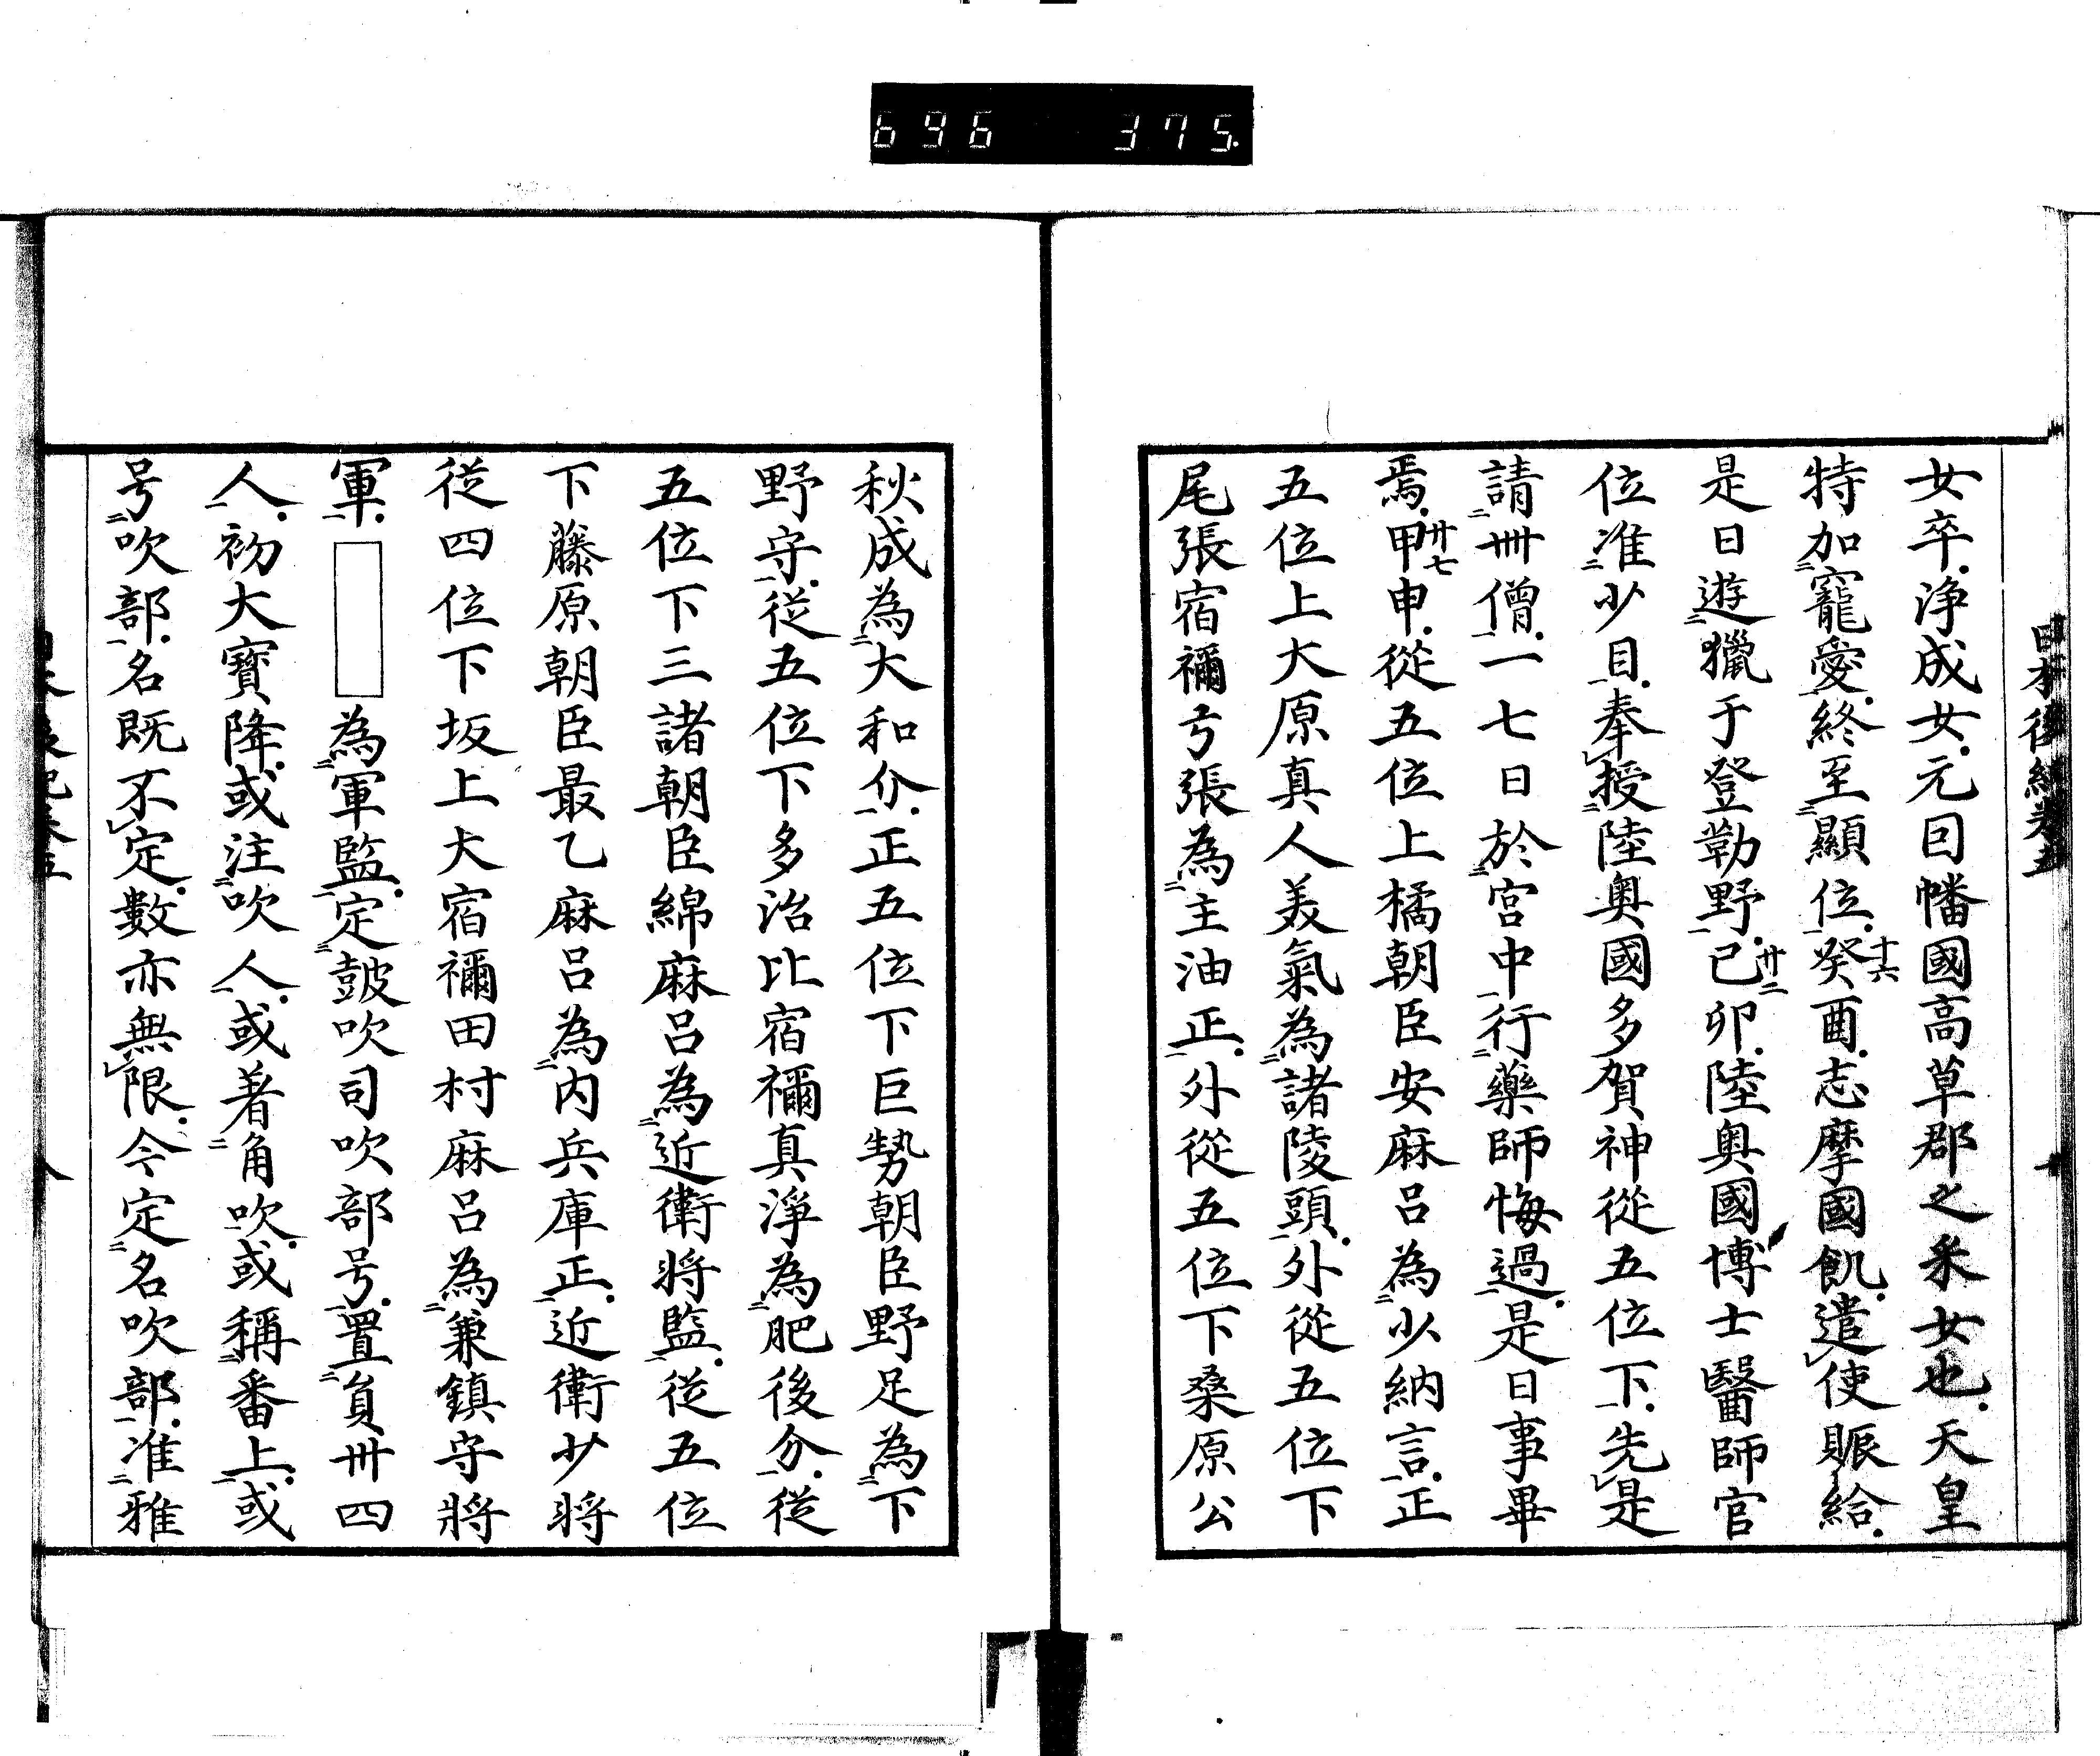 696 375.
女卒.淨成女.元因幡國高草郡之釆女也.天皇
特加二寵愛一.終至二顯位一.癸酉十六.志摩國飢.遣レ使賑給.
是日遊二獵于登勒野一.己卯廿二.陸奥國博士醫師官
位准二少目一.奉レ授二陸奥國多賀神從五位下一.先レ是
請二卌僧一.一七日於二宮中一行二藥師悔過一.是日事畢
焉.甲申廿七.從五位上橘朝臣安麻呂為二少納言一.正
五位上大原真人美氣為二諸陵頭一.外從五位下
尾張宿禰弓張為二主油正一.外從五位下桑原公
秋成為二大和介一.正五位下巨勢朝臣野足為二下
野守一.從五位下多治比宿禰真淨為二肥後介一.從
五位下三諸朝臣綿麻呂為二近衛將監一.從五位
下藤原朝臣最乙麻呂為二内兵庫正一.近衛少將
從四位下坂上大宿禰田村麻呂為二兼鎮守將
軍一.為二軍監一.定二鼓吹司吹部号一.置二員卌四
人一.初大寶降.或注二吹人一.或着二角吹一.或稱二番上一.或
号二吹部一.名既不レ定.數亦無レ限.今定二名吹部一.准二雅
日本後紀卷五